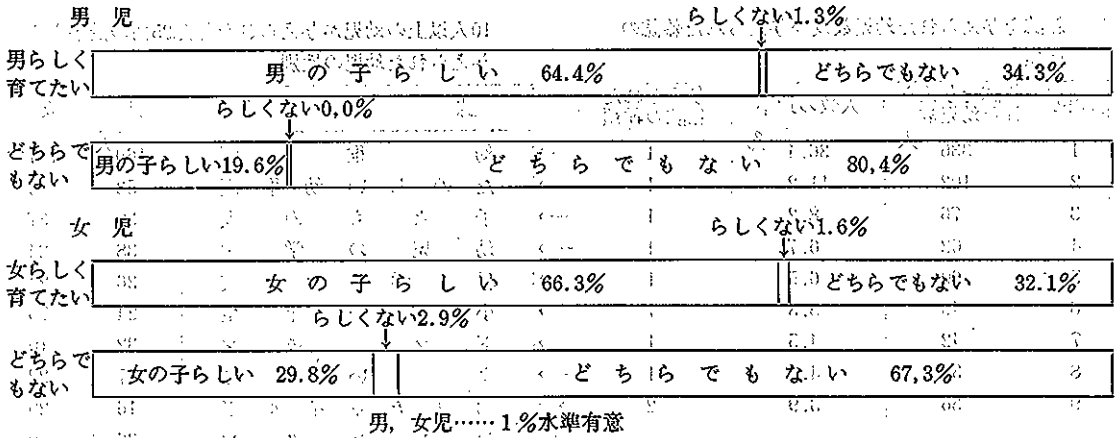 男 児
らしくない1.3%
↓
男らしく育てたい 男の子らしい 64.4% どちらでもない 34.3%
らしくない0,0%
↓
どちらでもない 男の子らしい19.6% どちらでもない 80,4%
女 児
らしくない1.6%
↓
女らしく育てたい 女の子らしい 66.3% どちらでもない 32.1%
らしくない2.9%
↓
どちらでもない 女の子らしい 29.8% どちらでもない 67,3%
男, 女児……1%水準有意